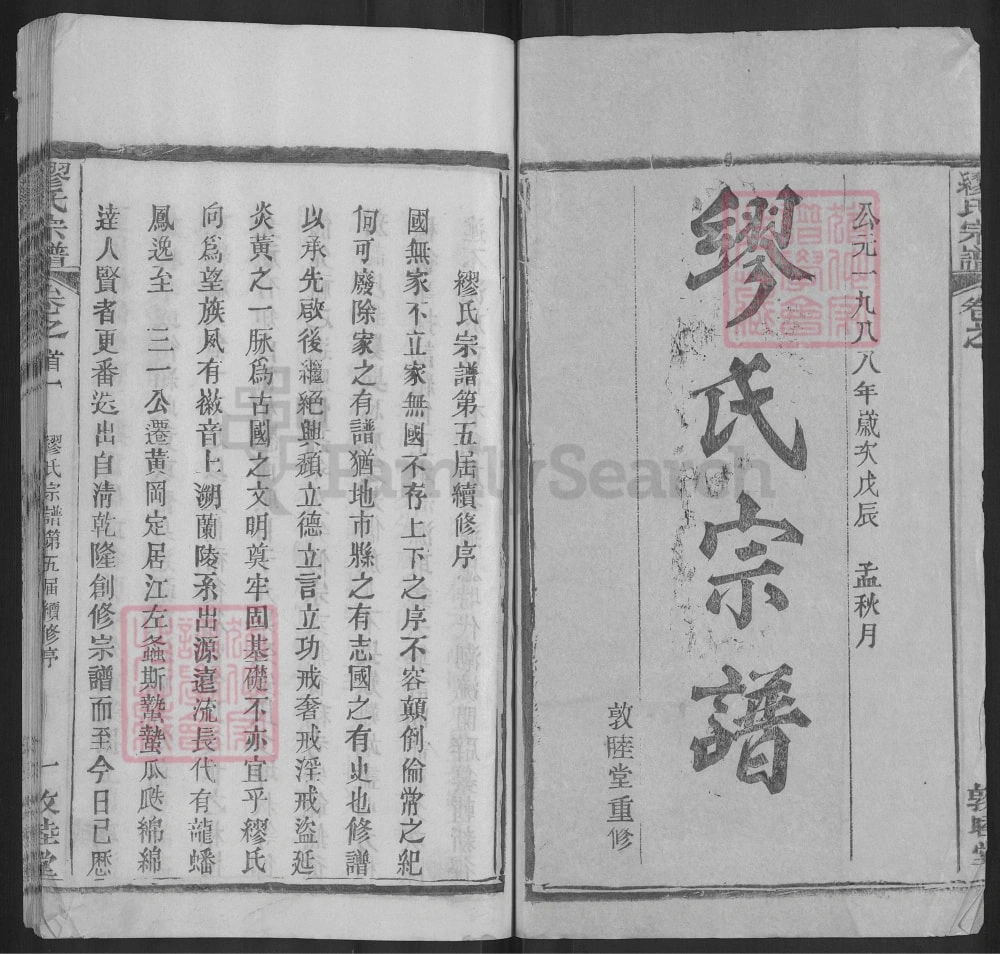 公元一九八八年歲次戊辰 孟秋月
繆氏宗譜
敦睦堂重修
繆氏宗譜 卷之
敦睦堂
繆氏宗譜第五屆續修序
國無家不立家無國不存上下之序不容顛倒倫常之紀
何可廢除家之有譜猶地市縣之有志國之有史也修譜
以承先啟後繼絕興頹立德立言立功戒奢戒淫戒盜延
炎黃之一脈為古國之文明奠牢固基礎不亦宜乎繆氏
向為望族夙有徽音上溯蘭陵系出源遠流長代有龍蟠
鳳逸至 三一公遷黃岡定居江左螽斯蟄蟄瓜瓞綿綿
達人賢者更番迭出自清乾隆創修宗譜而至今日已歷
繆氏宗譜 卷之首一 繆氏宗譜第五屆續修序 一 敦睦堂
FamilySearch